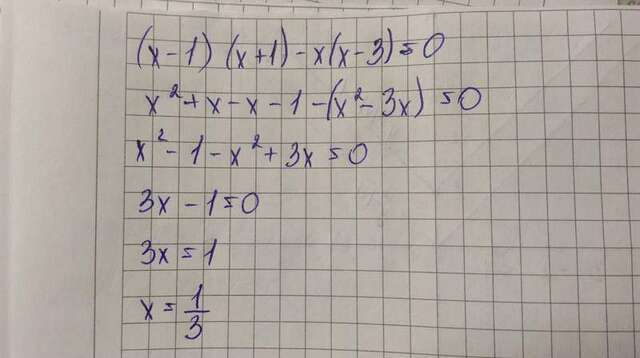 (x-1) (x+1) - x(x-3) = 0
x² + x - x - 1 - (x² - 3x) = 0
x² - 1 - x² + 3x = 0
3x - 1 = 0
3x = 1
x = 1/3